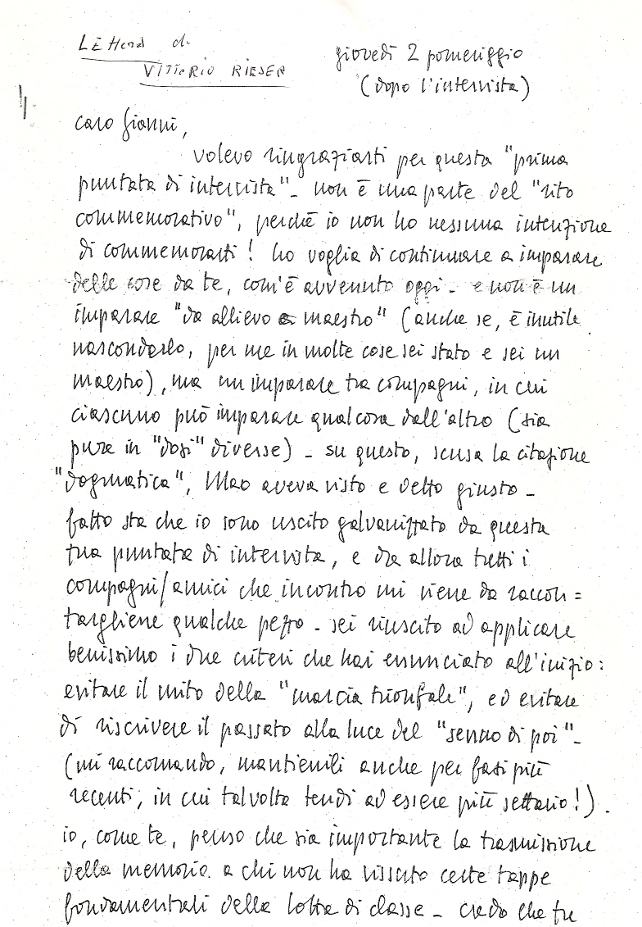 LETTERA di
VITTORIO RIESER
giovedì 2 pomeriggio
(dopo l'intervista)
caro Gianni,
volevo ringraziarti per questa "prima
puntata di intervista" - non è una parte del "rito
commemorativo", perché io non ho nessuna intenzione
di commemorarti! ho voglia di continuare a imparare
delle cose da te, com'è avvenuto oggi - e non è un
imparare "da allievo a maestro" (anche se, è inutile
nasconderlo, per me in molte cose sei stato e sei un
maestro), ma un imparare tra compagni, in cui
ciascuno può imparare qualcosa dall'altro (sia
pure in "dosi" diverse) - su questo, scusa la citazione
"dogmatica", Mao aveva visto e detto giusto -
fatto sta che io sono uscito galvanizzato da questa
tua puntata di intervista, e da allora tutti i
compagni/amici che incontro mi viene da raccon=
targliene qualche pezzo - sei riuscito ad applicare
benissimo i due criteri che hai enunciato all'inizio:
evitare il mito della "marcia trionfale", ed evitare
di riscrivere il passato alla luce del "senno di poi" -
(mi raccomando, mantienili anche per fasi più
recenti, in cui talvolta tendi ad essere più settario!).
io, come te, penso che sia importante la trasmissione
della memoria a chi non ha vissuto certe tappe
fondamentali della lotta di classe - credo che tu